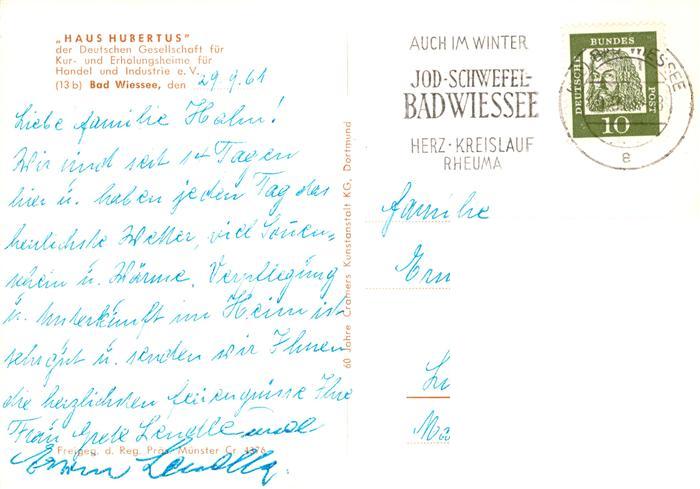 „HAUS HUBERTUS"
der Deutschen Gesellschaft für
Kur- und Erholungsheime für
Handel und Industrie e. V.
(13 b) Bad Wiessee, den 29.9.61
Liebe Familie Hahn!
Wir sind seit 14 Tagen
hier u. haben jeden Tag das
herrlichste Wetter, viel Sonnen-
schein u. Wärme. Verpflegung
u. Unterkunft im Heim ist
sehr gut u. senden wir Ihnen
die herzlichsten Feriengrüsse Ihre
Frau Grete Lendle und
Erwin Lendle.
Freigeg. d. Reg. Präs. Münster Cr 4376
60 Jahre Cramers Kunstanstalt KG, Dortmund
AUCH IM WINTER
JOD-SCHWEFEL-
BAD WIESSEE
HERZ·KREISLAUF
RHEUMA
BAD WIESSEE
a
DEUTSCHE BUNDESPOST
10
Familie